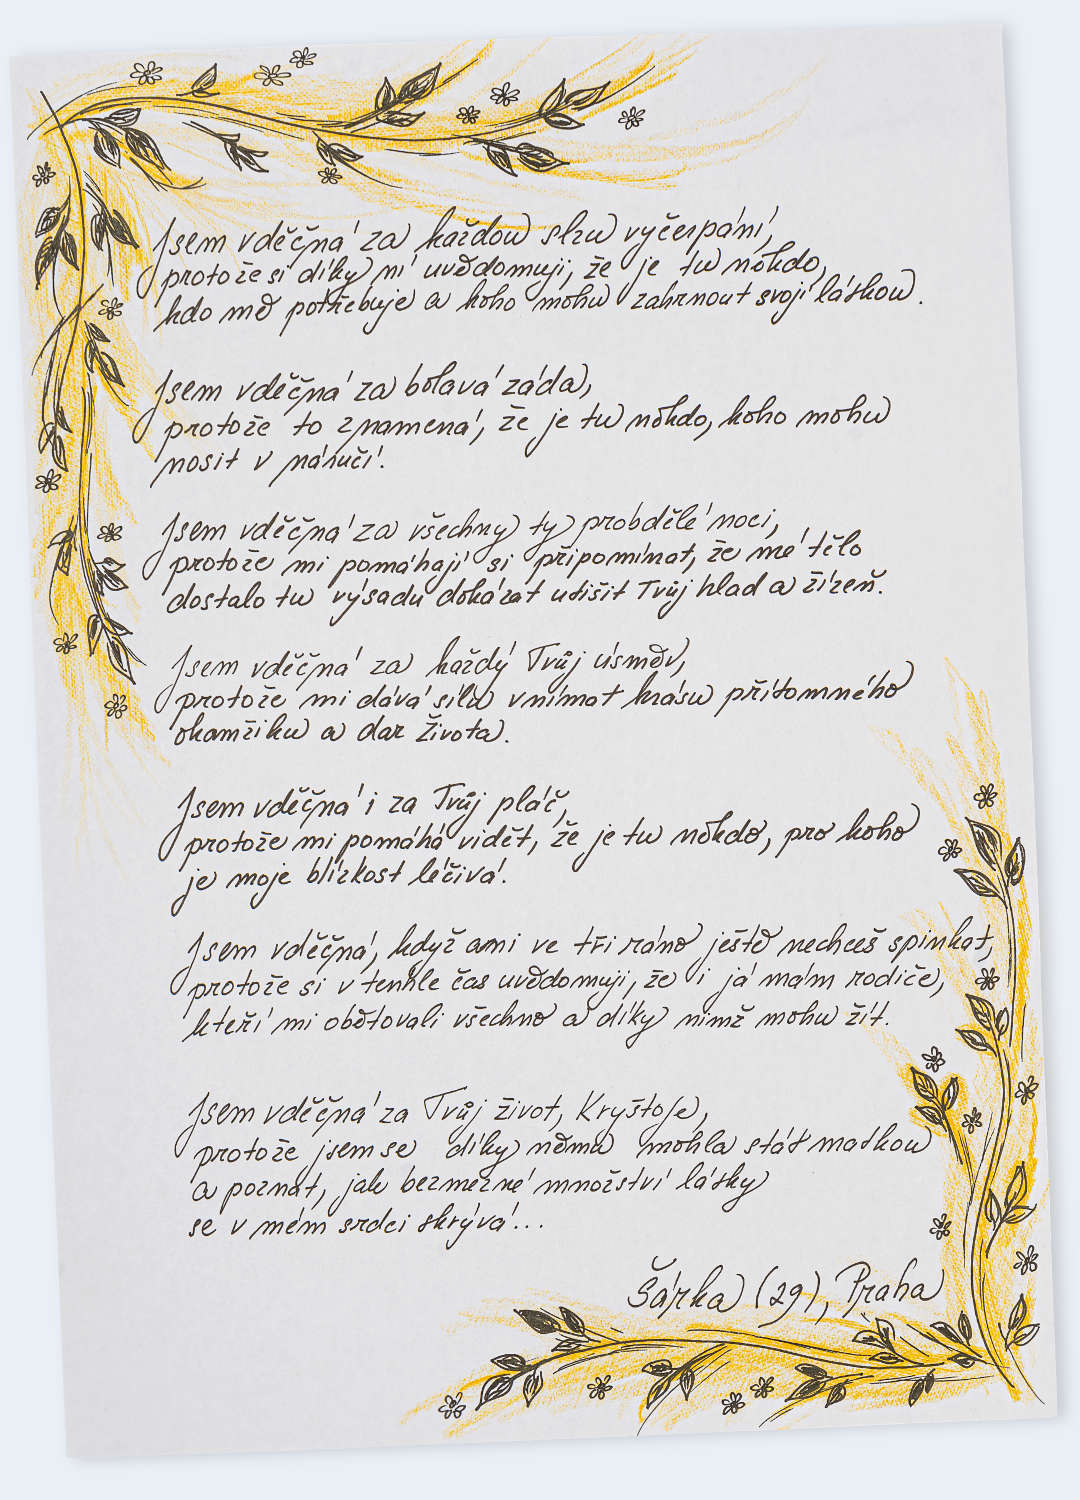 Jsem vděčná za každou slzu vyčerpání,
protože si díky ní uvědomuji, že je tu někdo,
kdo mě potřebuje a koho mohu zahrnout svojí láskou.
Jsem vděčná za bolavá záda,
protože to znamená, že je tu někdo, koho mohu
nosit v náručí.
Jsem vděčná za všechny ty probdělé noci,
protože mi pomáhají si připomínat, že mé tělo
dostalo tu výsadu dokázat utišit Tvůj hlad a žízeň.
Jsem vděčná za každý Tvůj úsměv,
protože mi dává sílu vnímat krásu přítomného
okamžiku a dar života.
Jsem vděčná i za Tvůj pláč,
protože mi pomáhá vidět, že je tu někdo, pro koho
je moje blízkost léčivá.
Jsem vděčná, když ani ve tři ráno ještě nechceš spinkat,
protože si v tenhle čas uvědomuji, že i já mám rodiče,
kteří mi obětovali všechno a díky nimž mohu žít.
Jsem vděčná za Tvůj život, Kryštofe,
protože jsem se díky němu mohla stát matkou
a poznat, jak bezmezné množství lásky
se v mém srdci skrývá...
Šárka (29), Praha